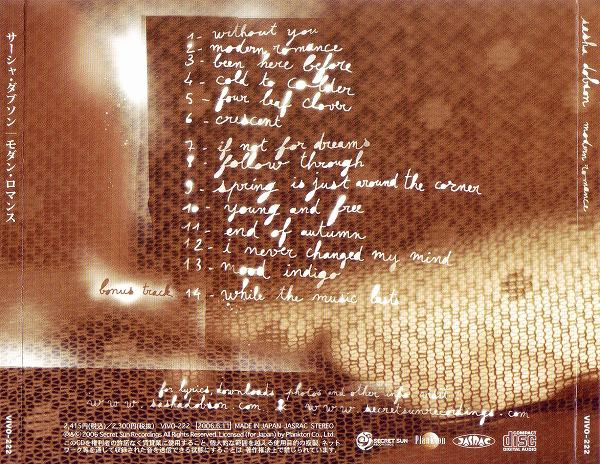 サーシャ・ダブソン | モダン・ロマンス
VIVO-222
1 - without you
2 - modern romance
3 - been here before
4 - cold to colder
5 - four leaf clover
6 - crescent
7 - if not for dreams
8 - follow through
9 - spring is just around the corner
10 - young and free
11 - end of autumn
12 - i never changed my mind
13 - mood indigo
bonus track 14 - while the music lasts
for lyrics, downloads, photos and other info visit
www.sashadobson.com & www.secretsunrecordings.com
2,415円(税込)/2,300円(税抜) VIVO-222 2006.6.11 MADE IN JAPAN JASRAC STEREO
℗&© 2006 Secret Sun Recordings All Rights Reserved. Licensed (for Japan) by Plankton Co., Ltd.
このCDを権利者の許諾なく賃貸業に使用すること、個人的な範囲を越える使用目的の複製、ネット
ワーク等を通して収録された音を送信できる状態にすることは、著作権法上で禁じられています。
SECRET SUN
Plankton
JASRAC
COMPACT
disc
DIGITAL AUDIO
sasha dobson modern romance
VIVO-222